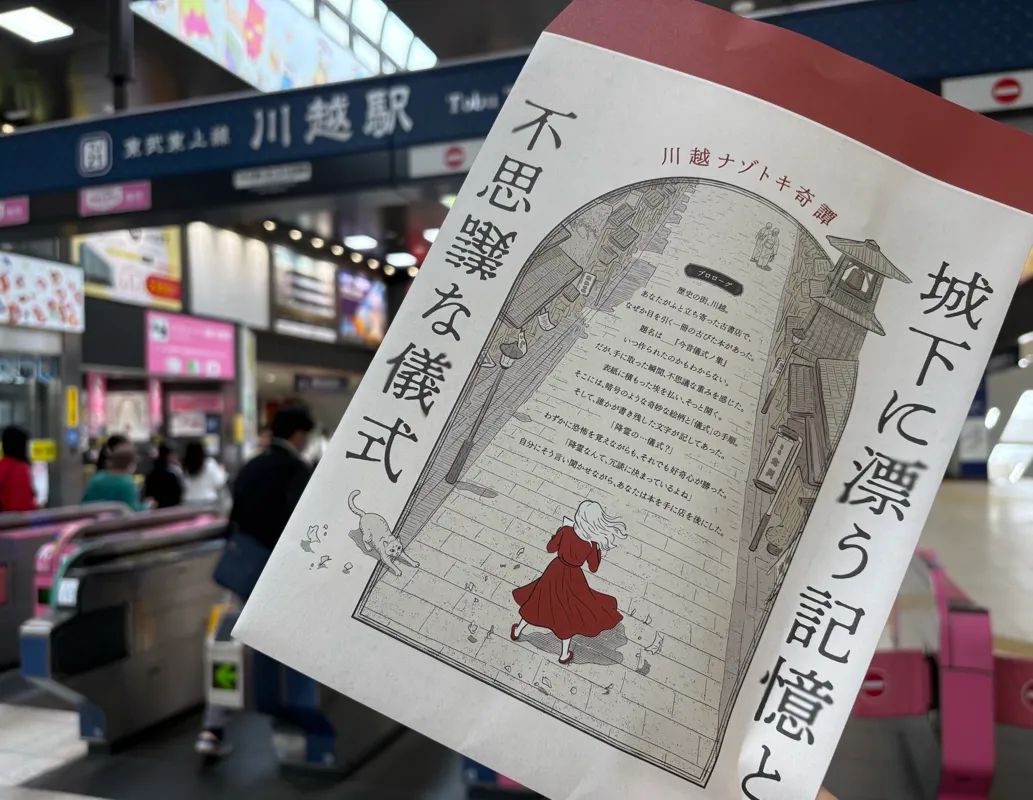 東武東上線
川越駅
川越ナゾトキ奇譚
城下に漂う記憶と
不思議な儀式
プロローグ
歴史の街、川越。
あなたがふと立ち寄った古書店で、
なぜか目を引く一冊の古びた本があった。
題名は――『今昔儀式ノ集』
いつ作られたのかもわからない。
だが、手に取った瞬間、不思議な重みを感じた。
表紙に積もった埃を払い、そっと開く。
そこには、暗号のような奇妙な絵柄と「儀式」の手順。
そして、誰かが書き残した文字が記してあった。
「降霊の…儀式?」
わずかに恐怖を覚えながらも、それでも好奇心が勝った。
「降霊なんて、冗談に決まっているよね」
自分にそう言い聞かせながら、あなたは本を手に店を後にした。